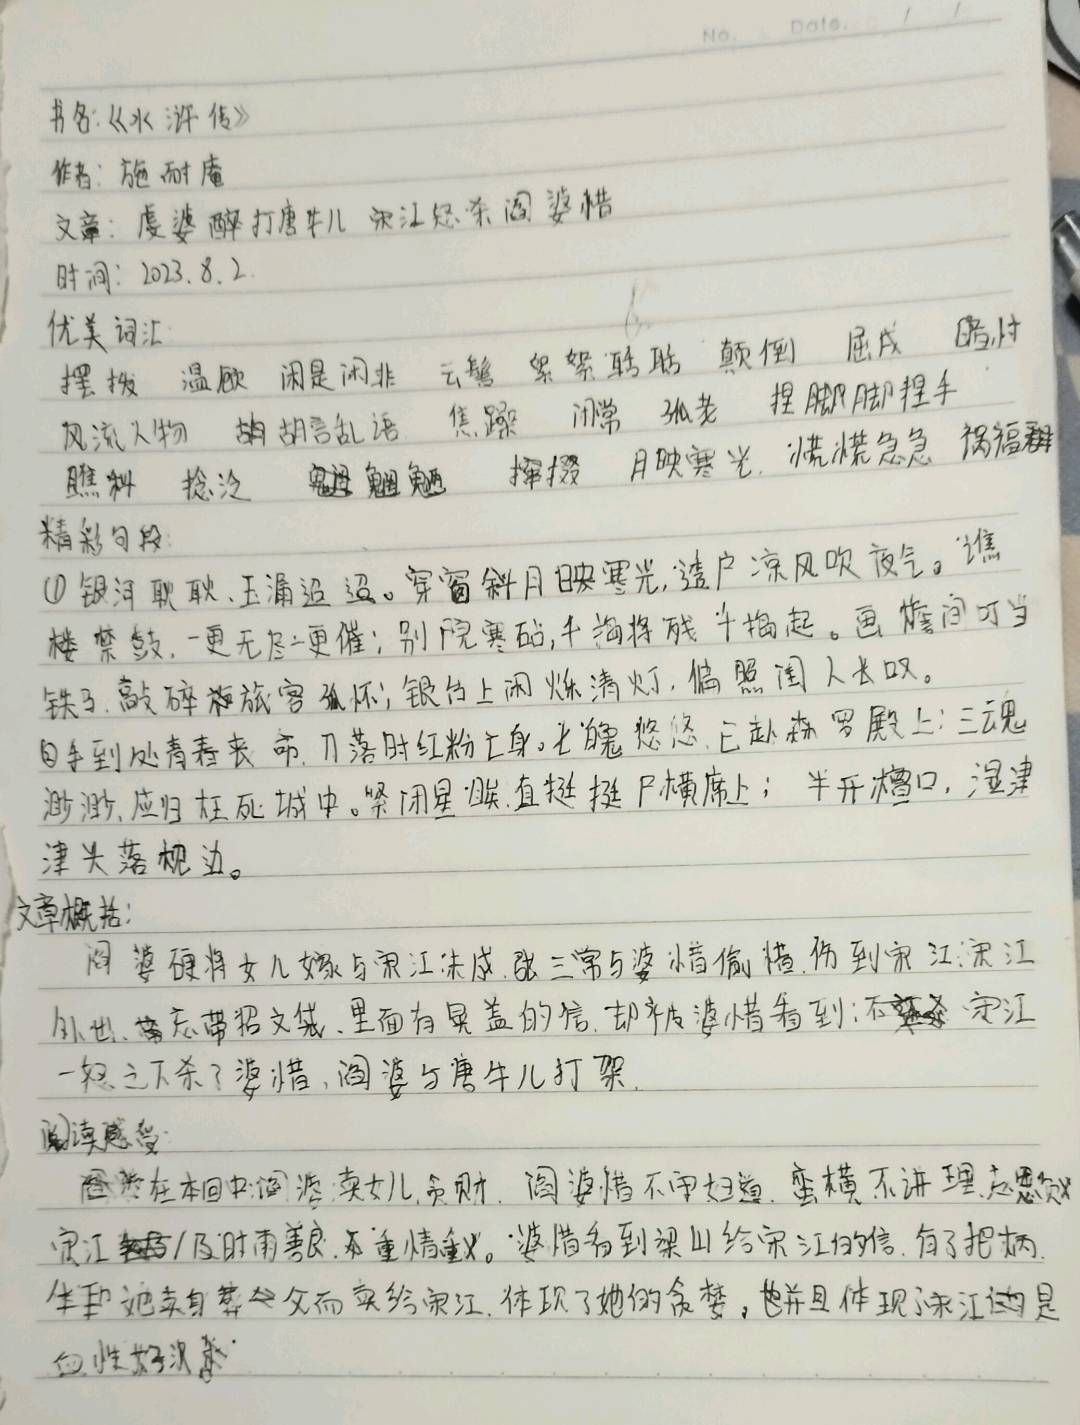 No. Date. / /
书名:《水浒传》
作者:施耐庵
文章:虔婆醉打唐牛儿 宋江怒杀阎婆惜
时间:2023.8.2.
优美词汇:
摆拨 温暾 闲是闲非 云鬓 絮絮聒聒 颠倒 屈戌 暗忖
风流人物 胡言乱语 焦躁 闲常 孤老 捏脚捏手
瞧科 捻泛 魍魉 撺掇 月映寒光. 慌慌急急 祸福
精彩句段:
①银河耿耿、玉漏迢迢。穿窗斜月映寒光,透户凉风吹夜气。谯
楼禁鼓,一更无尽二更催;别院寒砧,千捣将残千捣起。画檐间叮当
铁马,敲碎旅客孤怀;银台上闪烁清灯,偏照闺人长叹。
手到处青春丧命,刀落时红粉亡身。七魄悠悠,已赴森罗殿上;三魂
渺渺,应归枉死城中。紧闭星眸,直挺挺尸横席上; 半开檀口,湿津
津头落枕边。
文章概括:
阎婆硬将女儿嫁与宋江未成,张三常与婆惜偷情,伤到宋江;宋江
忘带招文袋、里面有晁盖的信,却被婆惜看到;宋江
一怒之下杀了婆惜、阎婆与唐牛儿打架.
阅读感受:
在本回中阎婆卖女儿,贪财. 阎婆惜不守妇道、蛮横不讲理
宋江及时雨善良、重情重义。婆惜看到梁山给宋江的信,有了把柄.
她卖身葬父而卖给宋江,体现了她的贪婪,并且体现了宋江是
血性好汉